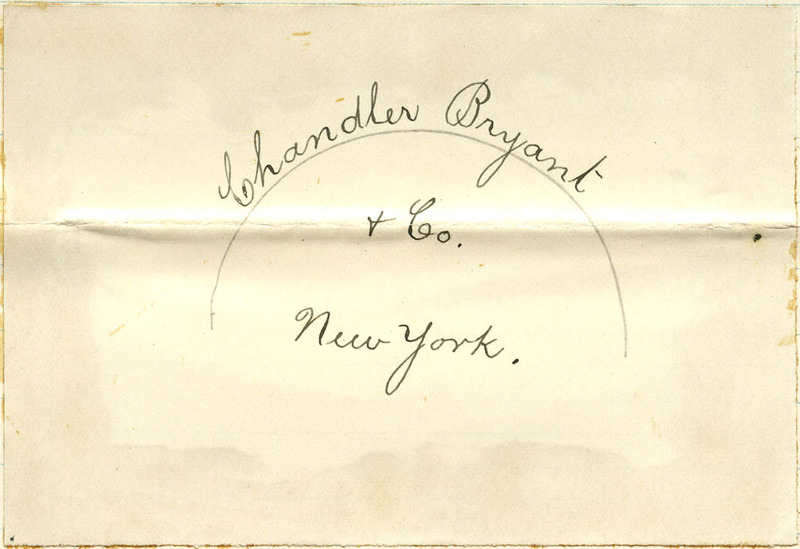 Chandler Bryant
& Co.
New York.